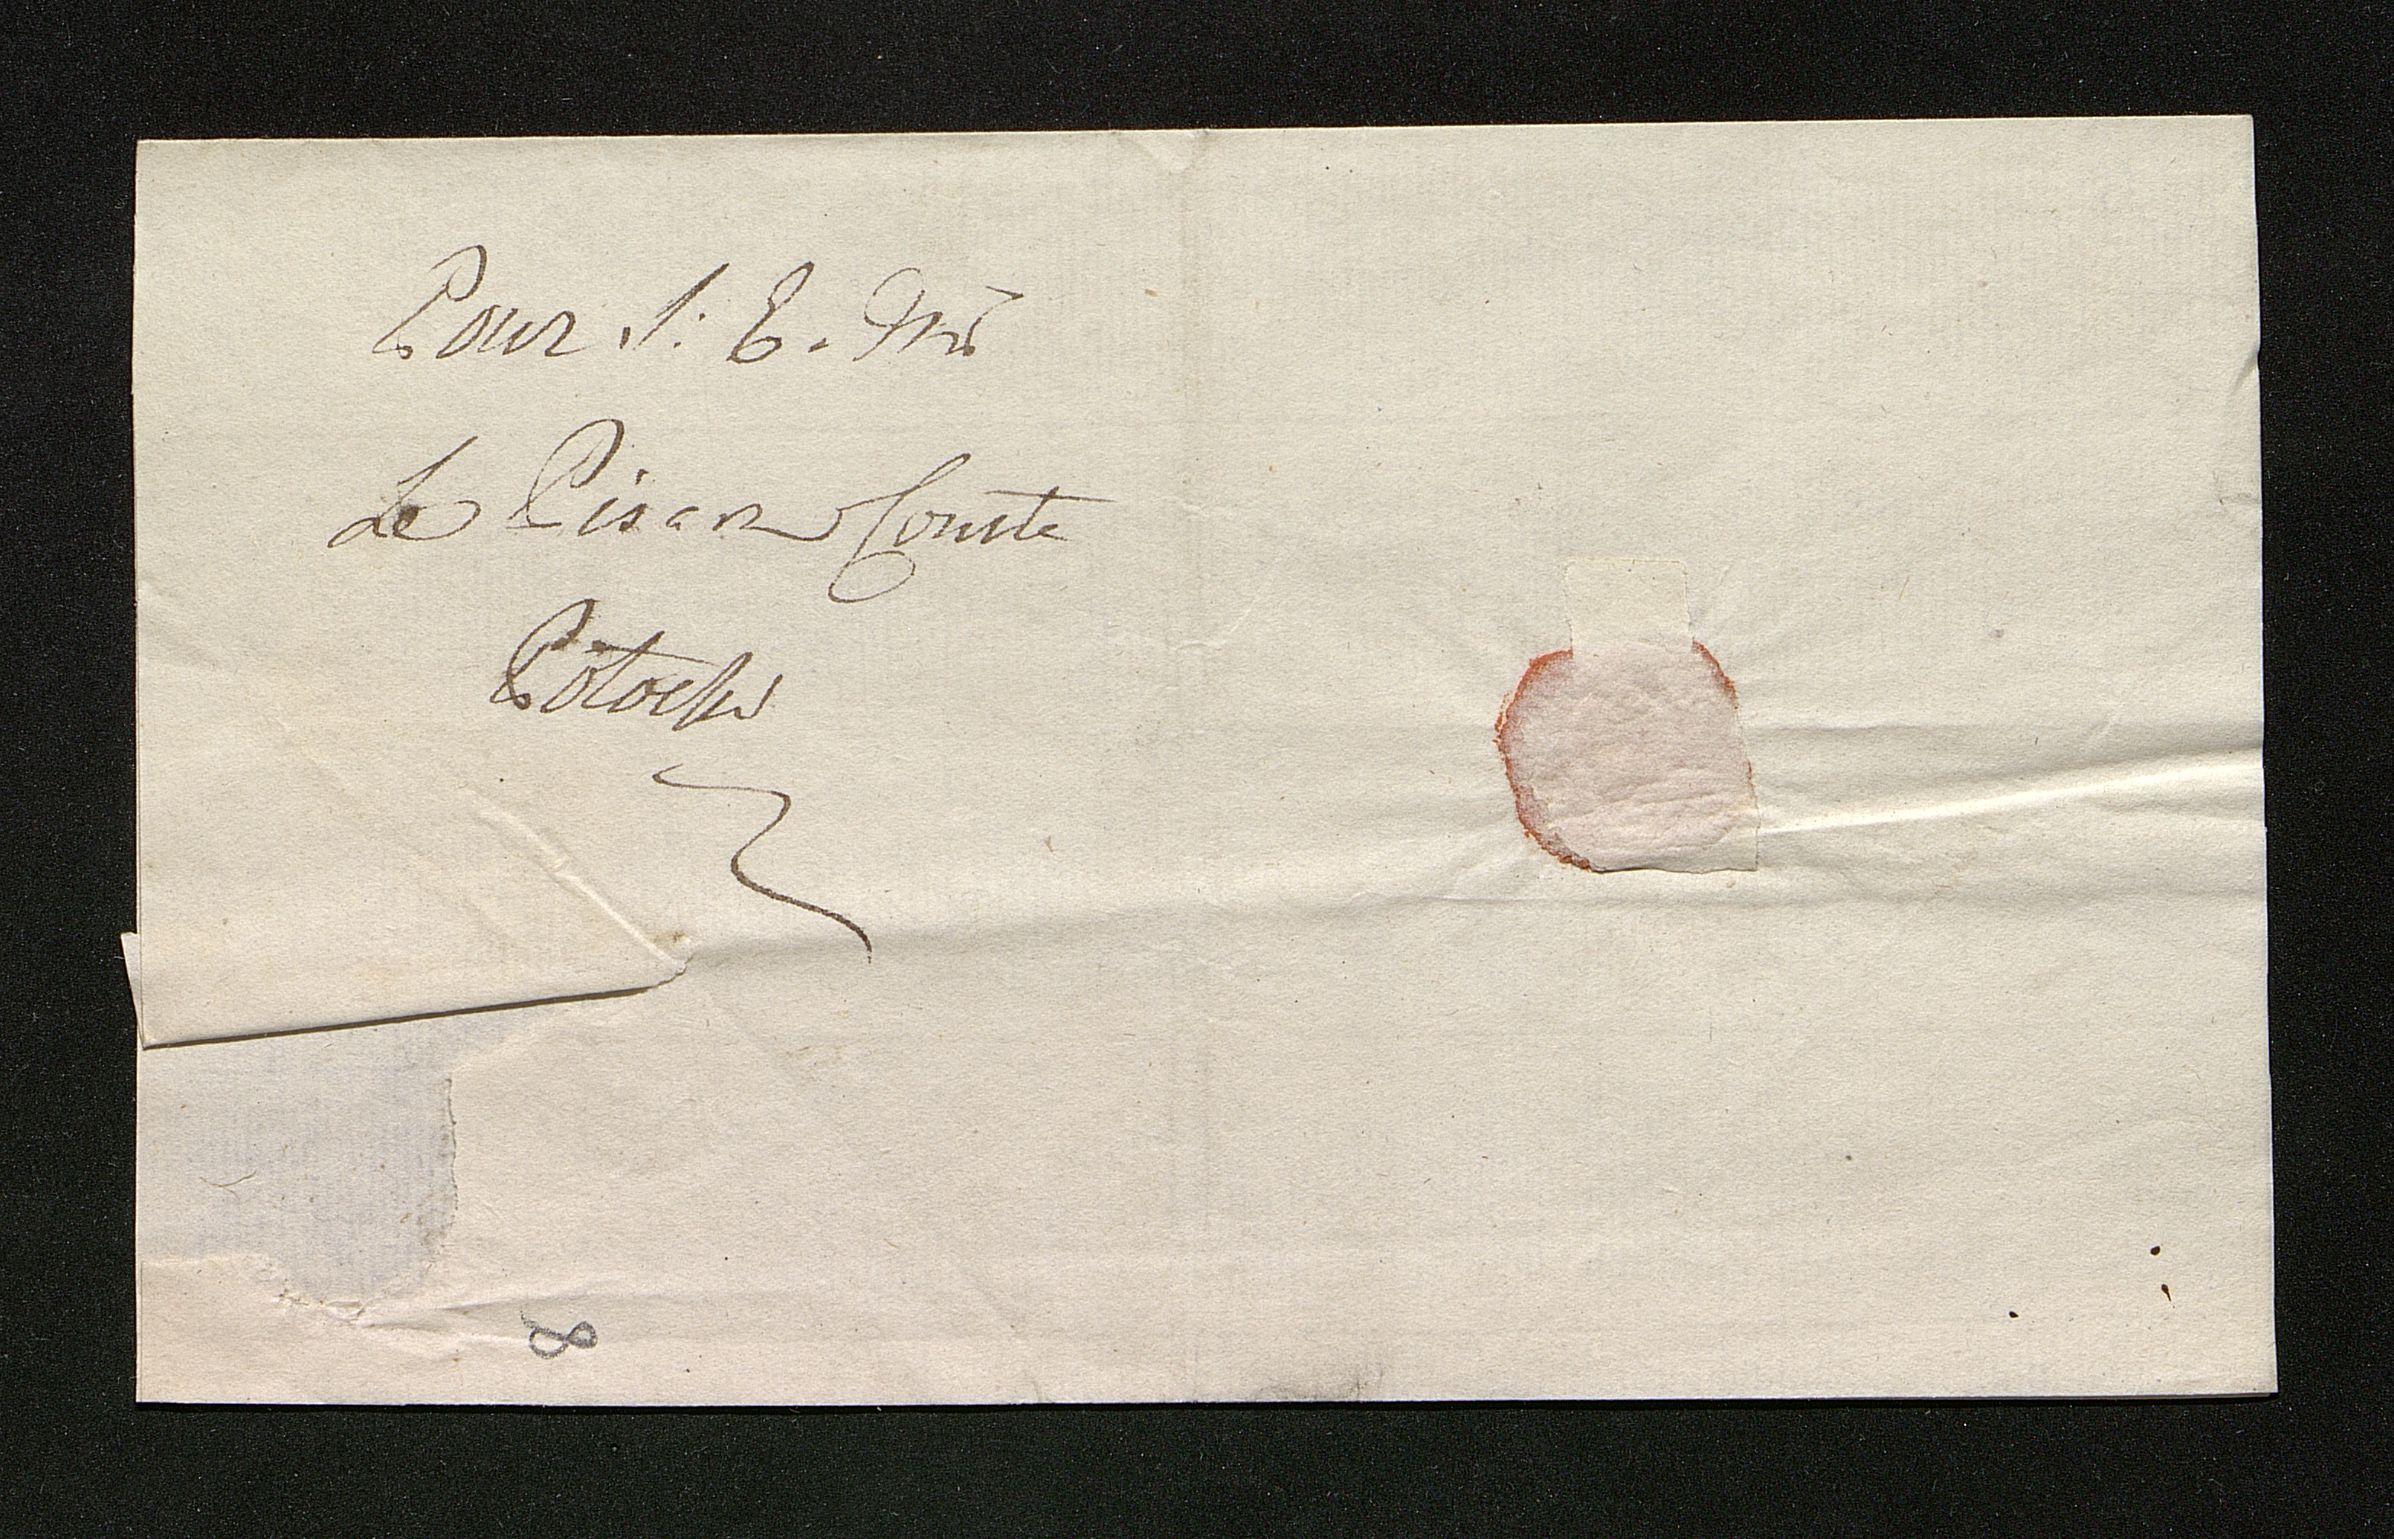 Pour S: E. Mr
Le Pisarz Comte
Potocki
8